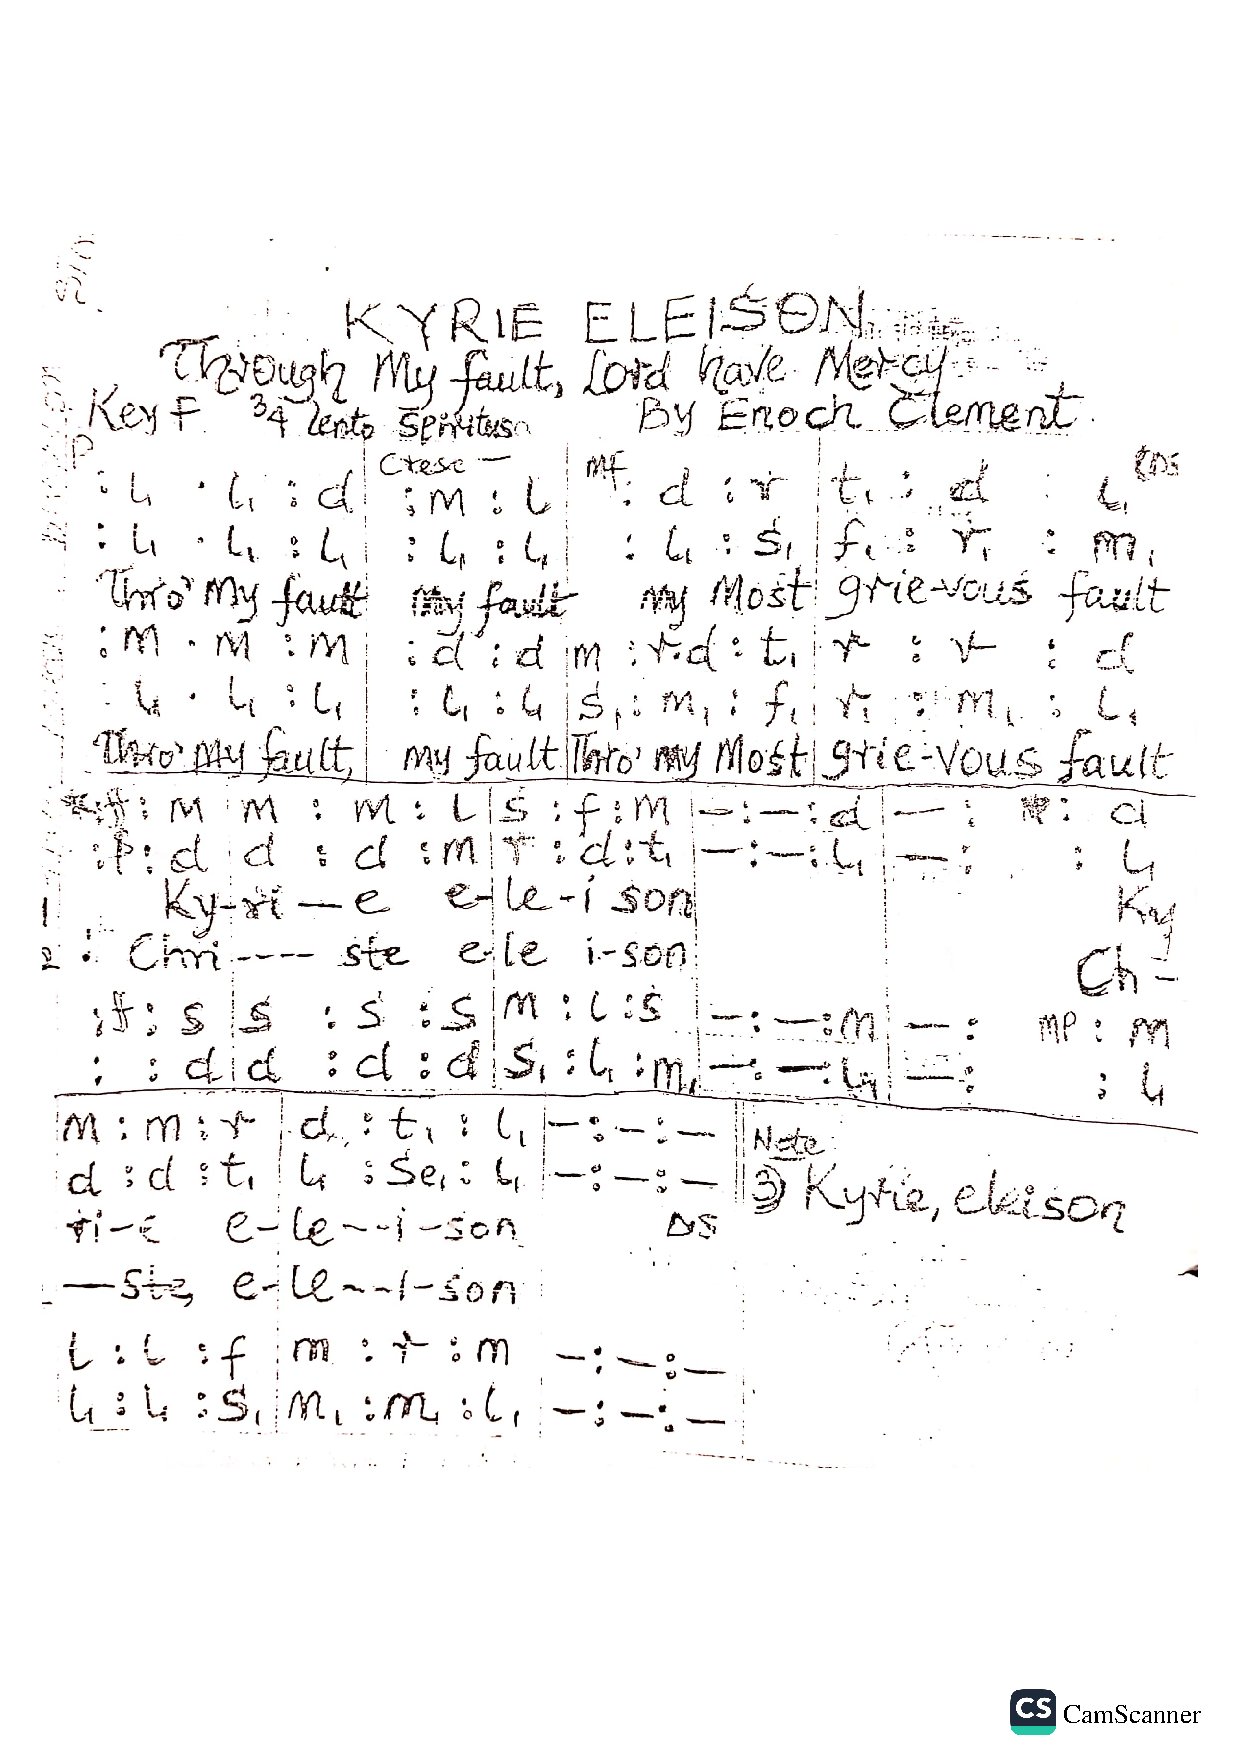 KYRIE ELEISON
Through My fault, Lord have Mercy
Key F 3/4 Lento Spiritus
By Enoch Clement
P Cresc — MF
: l₁ . l₁ : d | : m : l | : d : r | t₁ : d : l₁
: l₁ . l₁ : l₁ | : l₁ : l₁ | : l₁ : s₁ | f₁ : r₁ : m₁
Thro' My fault my fault my Most grie-vous fault
: m . m : m | : d : d | m : r.d : t₁ | r : r : d
: l₁ . l₁ : l₁ | : l₁ : l₁ | s₁ : m₁ : f₁ | r₁ : m₁ : l₁
Thro' My fault, my fault Thro' my Most grie-vous fault
: f : m | m : m : l | s : f : m | — : — : d | — : : d
: P : d | d : d : m | r : d : t₁ | — : — : l₁ | — : : l₁
1 Ky-ri — e e-le-i son Ky
2 : Chri ---- ste e-le i-son Ch -
: f : s | s : s : s | m : l : s | — : — : m | — : MP : m
: : d | d : d : d | s₁ : l₁ : m₁ | — : — : l₁ | — : : l₁
m : m : r | d : t₁ : l₁ | — : — : —
d : d : t₁ | l₁ : se₁ : l₁ | — : — : —
Note
3) Kyrie, eleison
ri-e e-le--i-son DS
— ste, e-le--i-son
l : l : f | m : r : m — : — : —
l₁ : l₁ : s₁ | m₁ : m₁ : l₁ | — : — : —
CS CamScanner